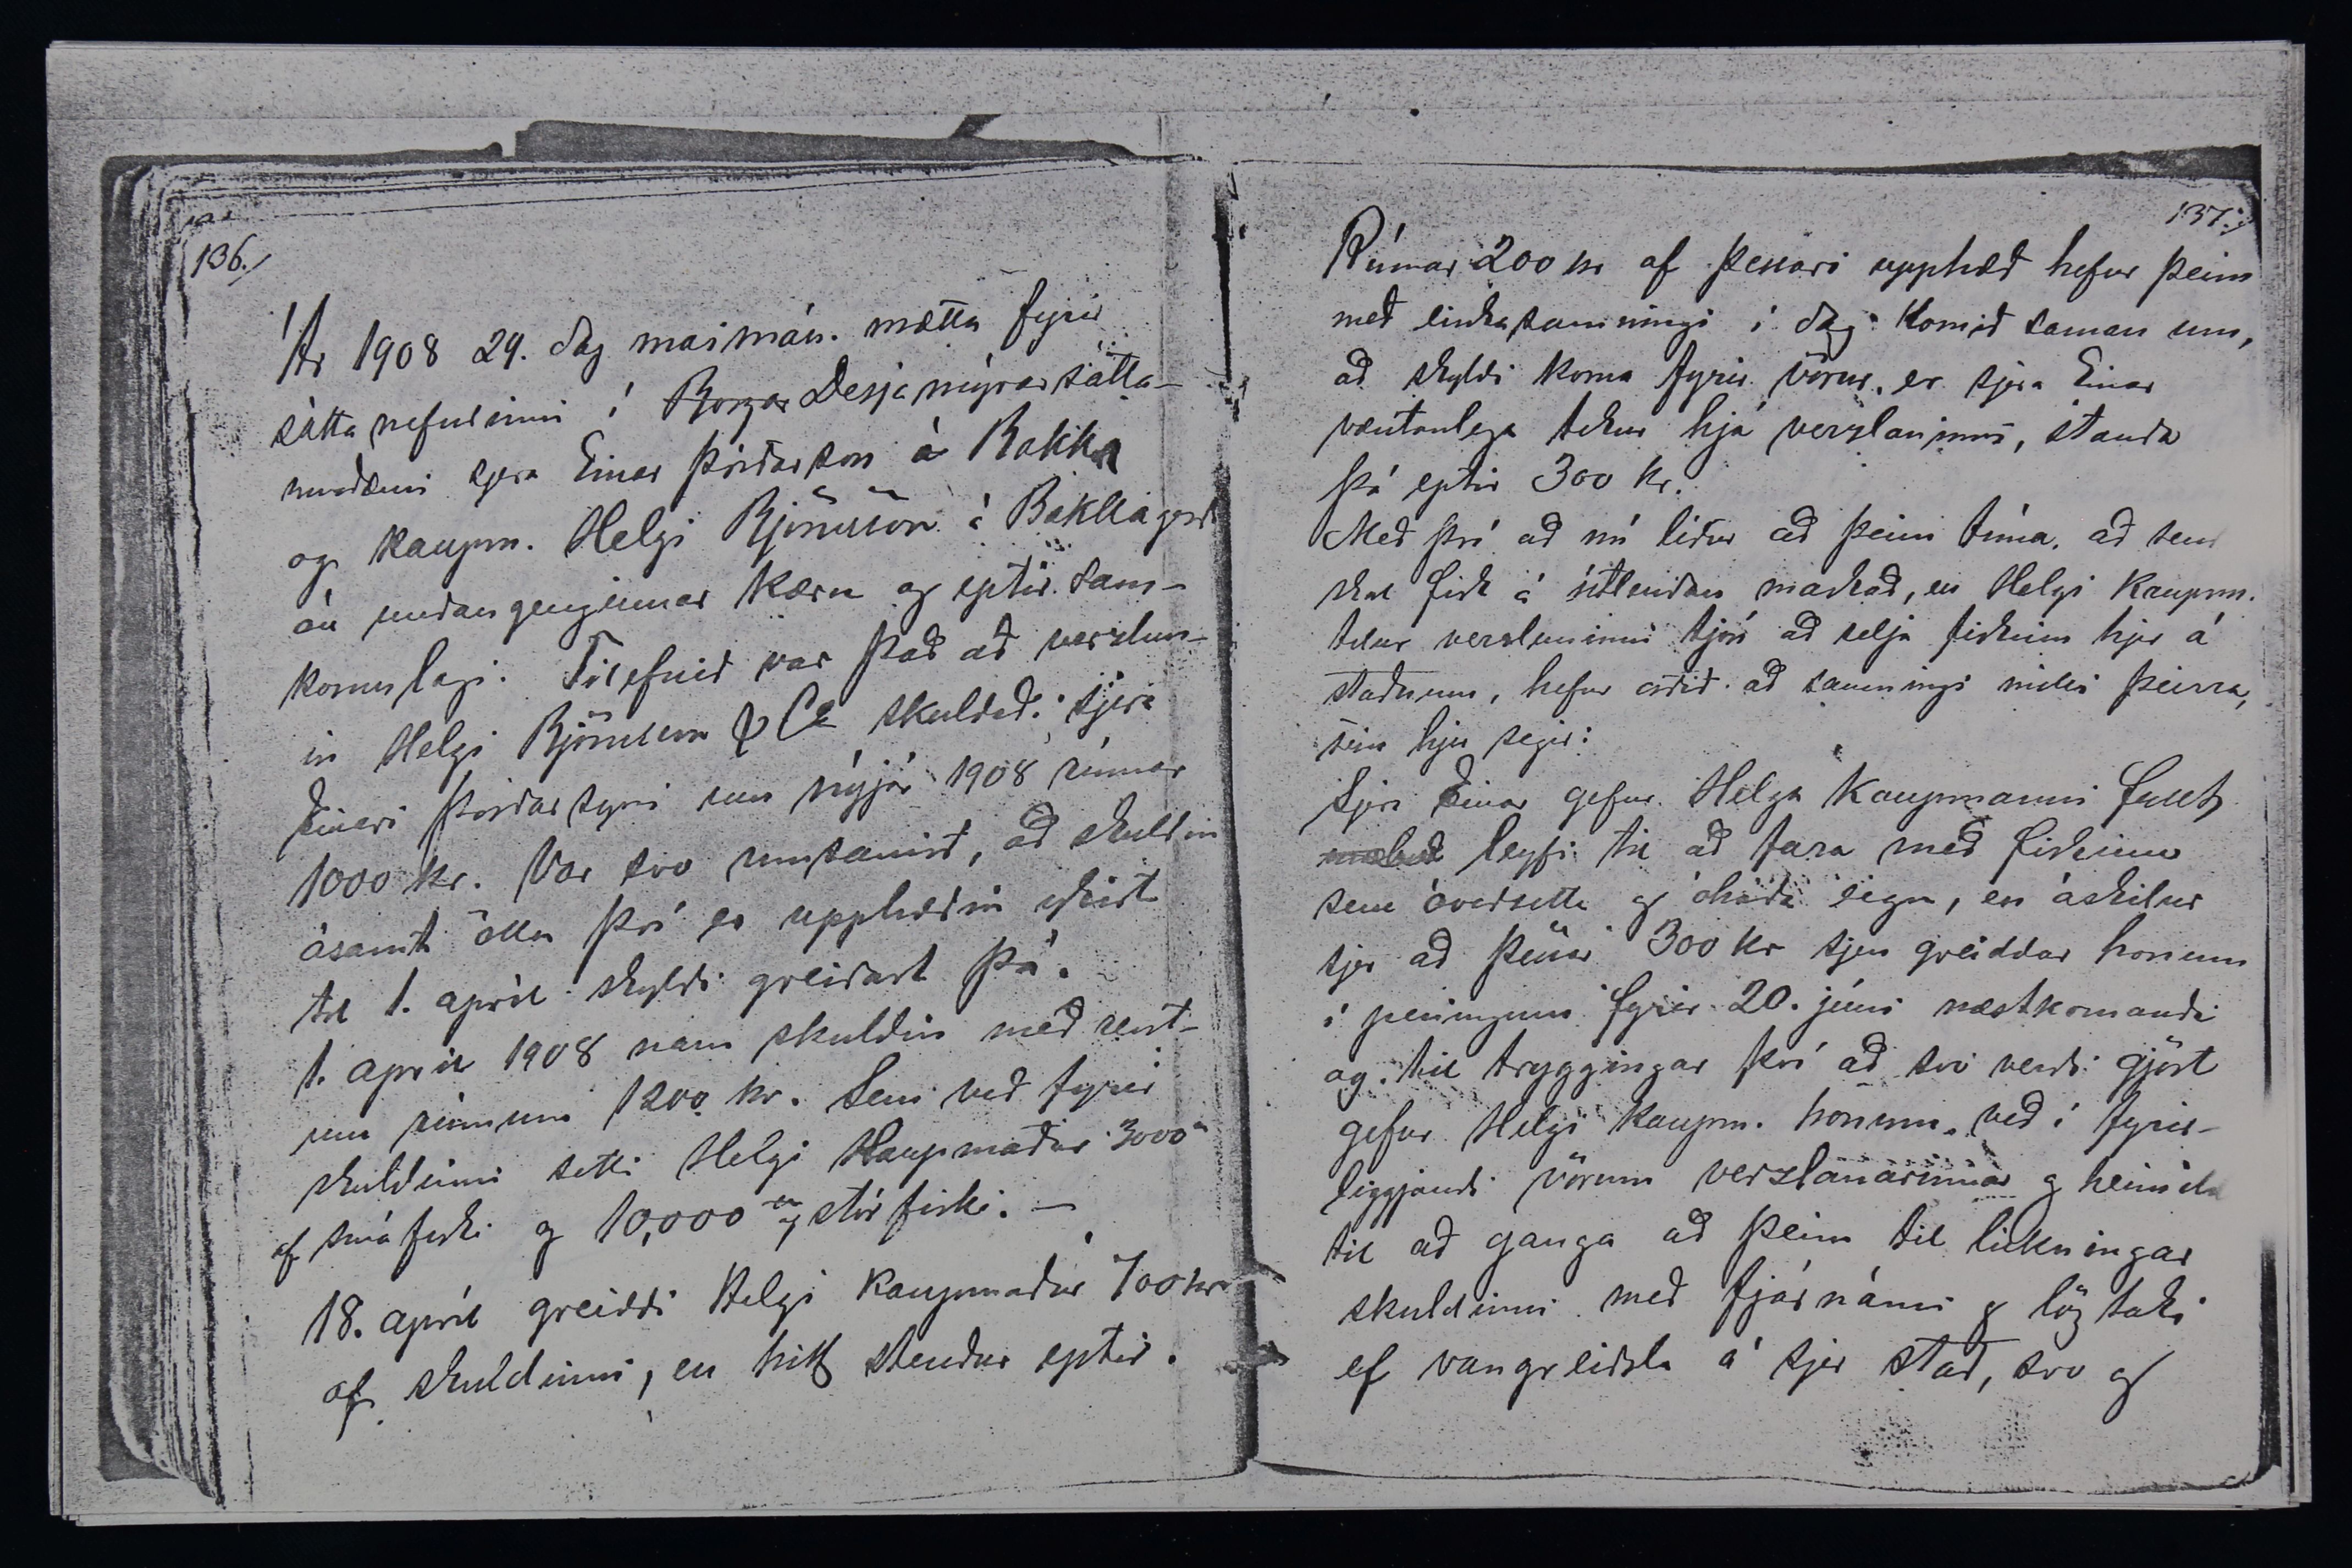 136./
Ár 1908 29. dag maímán. mættu fyrir
sáttanefndinni í Borgar Desjamýrarsátta-
umdæmi sjera Einar Þórðarson á Bakka
og kaupm. Helgi Björnsson á Bakkagerði
án undangenginnar kæru og eptir sam-
komulagi. Tilefnið var það að verzlun-
in Helgi Björnsson & Co skuldaði sjera
Einari Þórðarsyni um nýjár 1908 rúmar
1000 kr. Var svo umsamið, að skuldin
ásamt öllu því er upphæðin ykist
til 1. apríl skyldi greiðast þá.
1. apríl 1908 nam skuldin með rent-
um rúmum 1200 kr. Sem veð fyrir
skuldinni setti Helgi kaupmaður 3000
af smáfiski og 10,000 stórfiski. -
18. apríl greiddi Helgi kaupmaður 700 kr
af skuldinni, en hitt stendur eptir.
137./
Rúmar 200 kr af þessari upphæð hefur þeim
með einkasamningi í dag komið saman um,
að skyldi koma fyrir vörur, er sjera Einar
væntanlega tekur hjá verzluninni, standa
þá eptir 300 kr.
Með því að nú líður að þeim tíma, að
skal fisk á útlendan markað, en Helgi kaupm.
telur verzluninni tjón að selja fiskinn hjer á
staðnum, hefur orðið að samningi milli þeirra,
sem hjer segir:
Sjera Einar gefur Helga kaupmanni fullt
leyfi til að fara með fiskinn
sem óveðsetta og óháða eign, en áskilur
sjer að þessar 300 kr sjeu greiddar honum
í peningum fyrir 20. júní næstkomandi
og til tryggingar því að svo verði gjört
gefur Helgi kaupm. honum veð í fyrir-
liggjandi vörum verzlunarinnar og heimild
til að ganga að þeim til lúkningar
skuldinni með fjárnámi og lögtaki
ef vangreiðsla á sjer stað, svo og